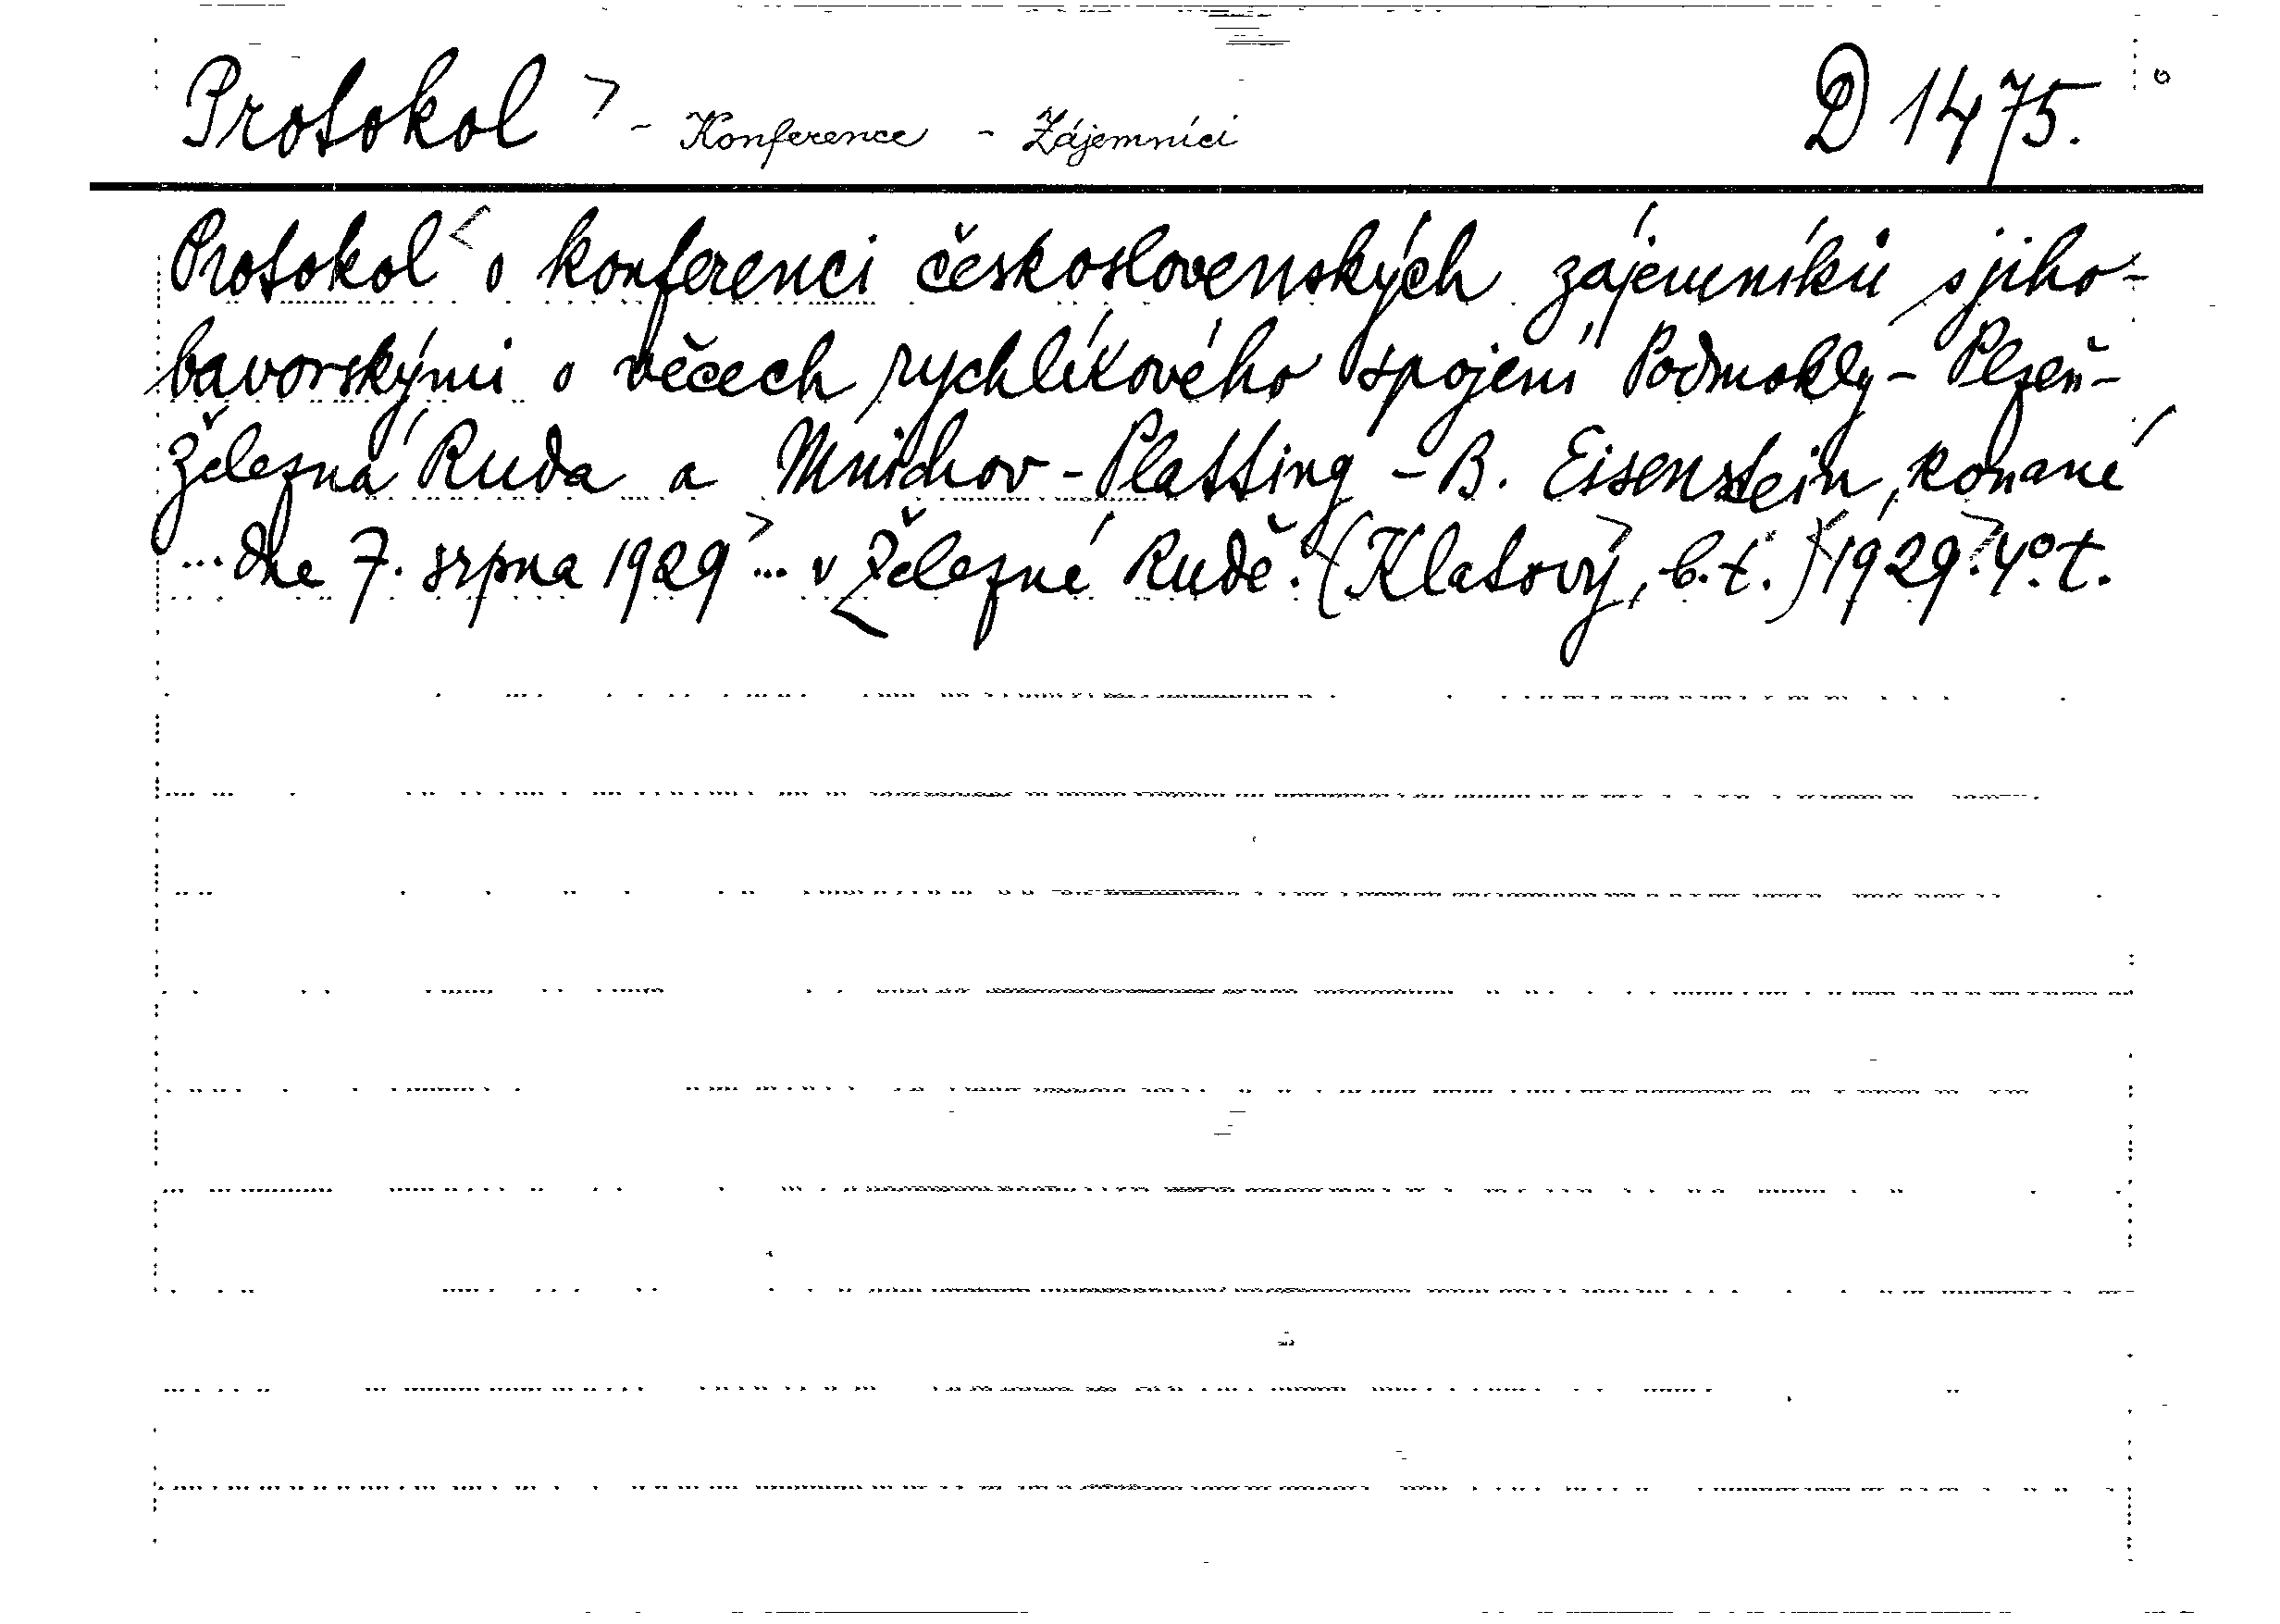 Protokol > - Konference - Zájemníci D 1475.
Protokol < o konferenci československých zájemníků s jiho-
bavorskými o věcech rychlíkového spojení Podmokly - Plzeň -
Železná Ruda a Mnichov - Platting - B. Eisenstein, konané
... dne 7. srpna 1929 > ... v Železné Rudě. (Klatovy, b. t.) 1929. 4°. t.